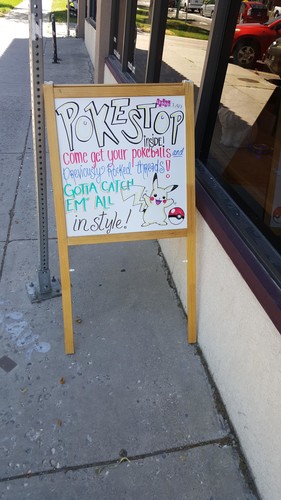 POKESTOP
inside!
come get your pokeballs and
previously rocked threads!
GOTTA CATCH
EM' ALL
in style!